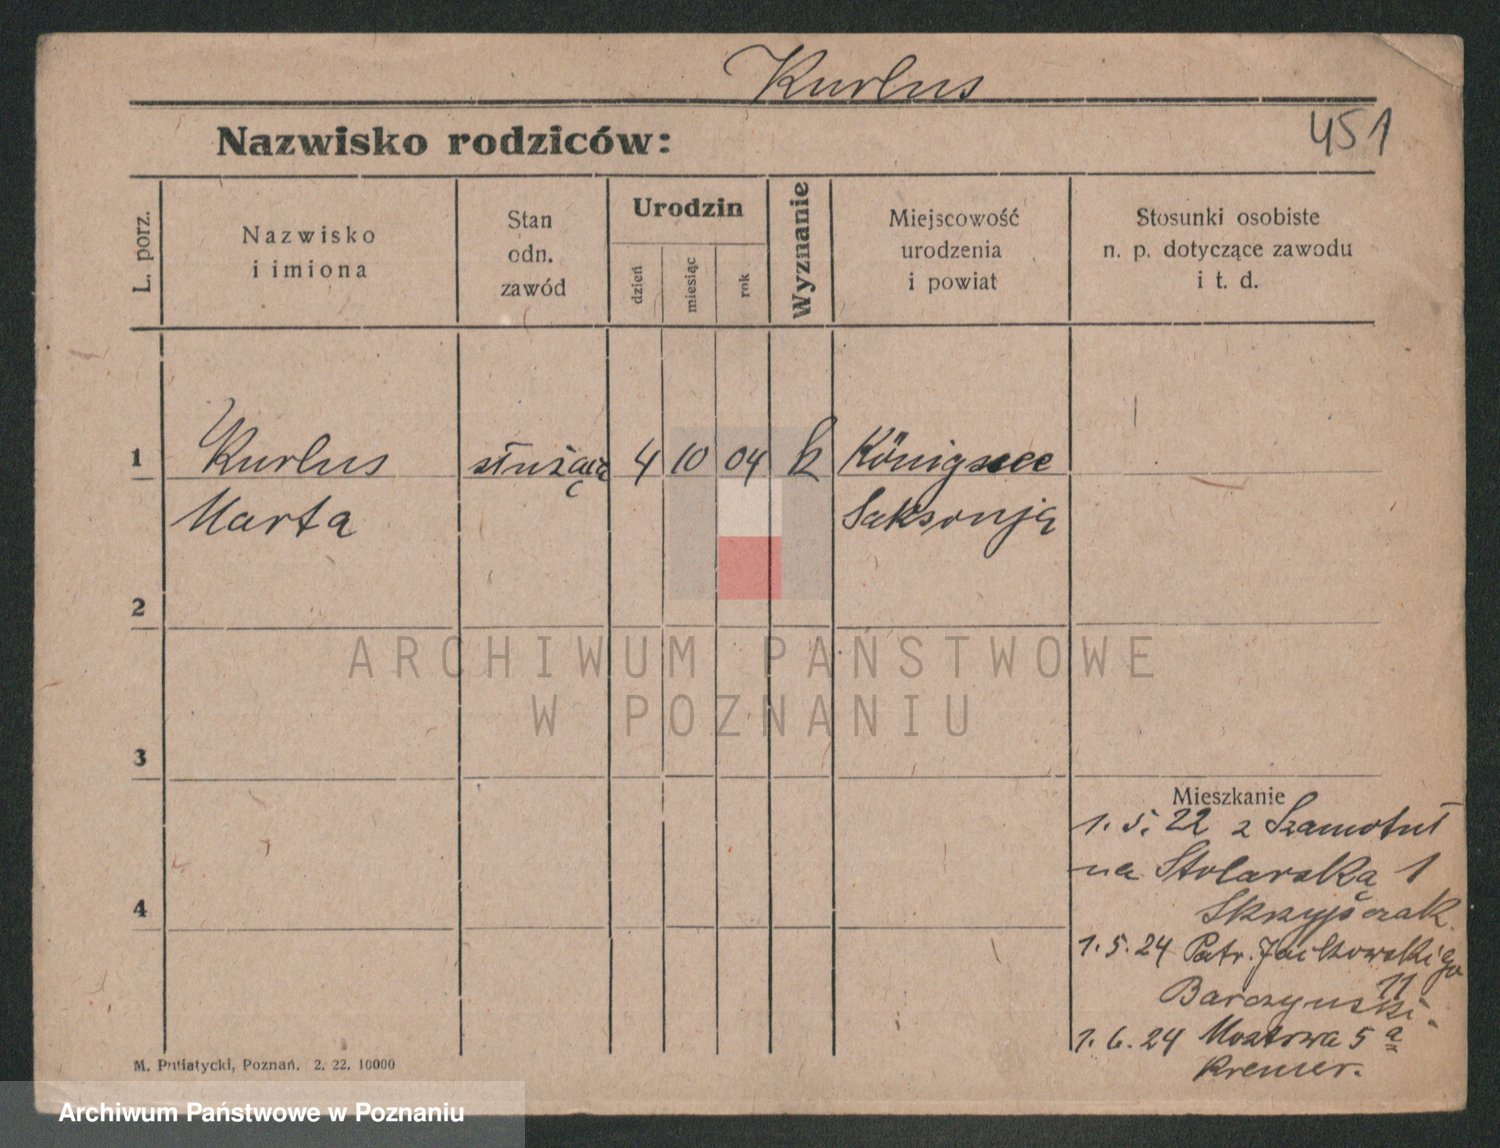 Kurlus
Nazwisko rodziców:
451
L. porz.
Nazwisko
i imiona
Stan
odn.
zawód
Urodzin
dzień
miesiąc
rok
Wyznanie
Miejscowość
urodzenia
i powiat
Stosunki osobiste
n. p. dotyczące zawodu
i t. d.
1
Kurlus
służąca
4
10
04
k
Königsee
Marta
Saksonja
2
3
4
Mieszkanie
1. 5. 22 z Szamotuł
na Stolarską 1
1. 5. 24 Patr. Jackowskiego
11
Barczynski.
1. 6. 24 5 a
Kremer.
M. Putiatycki, Poznań. 2. 22. 10000
ARCHIWUM PAŃSTWOWE
W POZNANIU
Archiwum Państwowe w Poznaniu